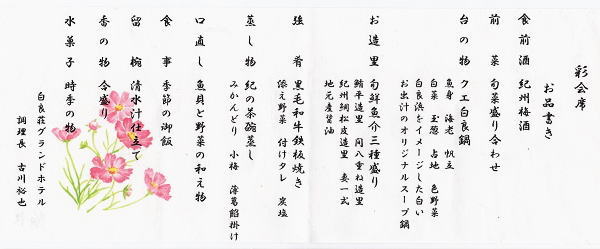 彩会席
お品書き
食前酒 紀州梅酒
前菜 旬菜盛り合わせ
台の物 クエ白良鍋
魚身 海老 帆立
白菜 玉葱 占地 色野菜
白良浜をイメージした白い
お出汁のオリジナルスープ鍋
お造里 旬鮮魚介三種盛り
鮪平造里 間八重ね造里
紀州鯛松皮造里 妻一式
地元産醤油
強肴 黒毛和牛鉄板焼き
添え野菜 付けタレ 炭塩
蒸し物 紀の茶碗蒸し
みかんどり 小梅 薄葛餡掛け
口直し 魚貝と野菜の和え物
食事 季節の御飯
留椀 清水汁仕立て
香の物 合盛り
水菓子 時季の物
白良荘グランドホテル
調理長 古川裕也